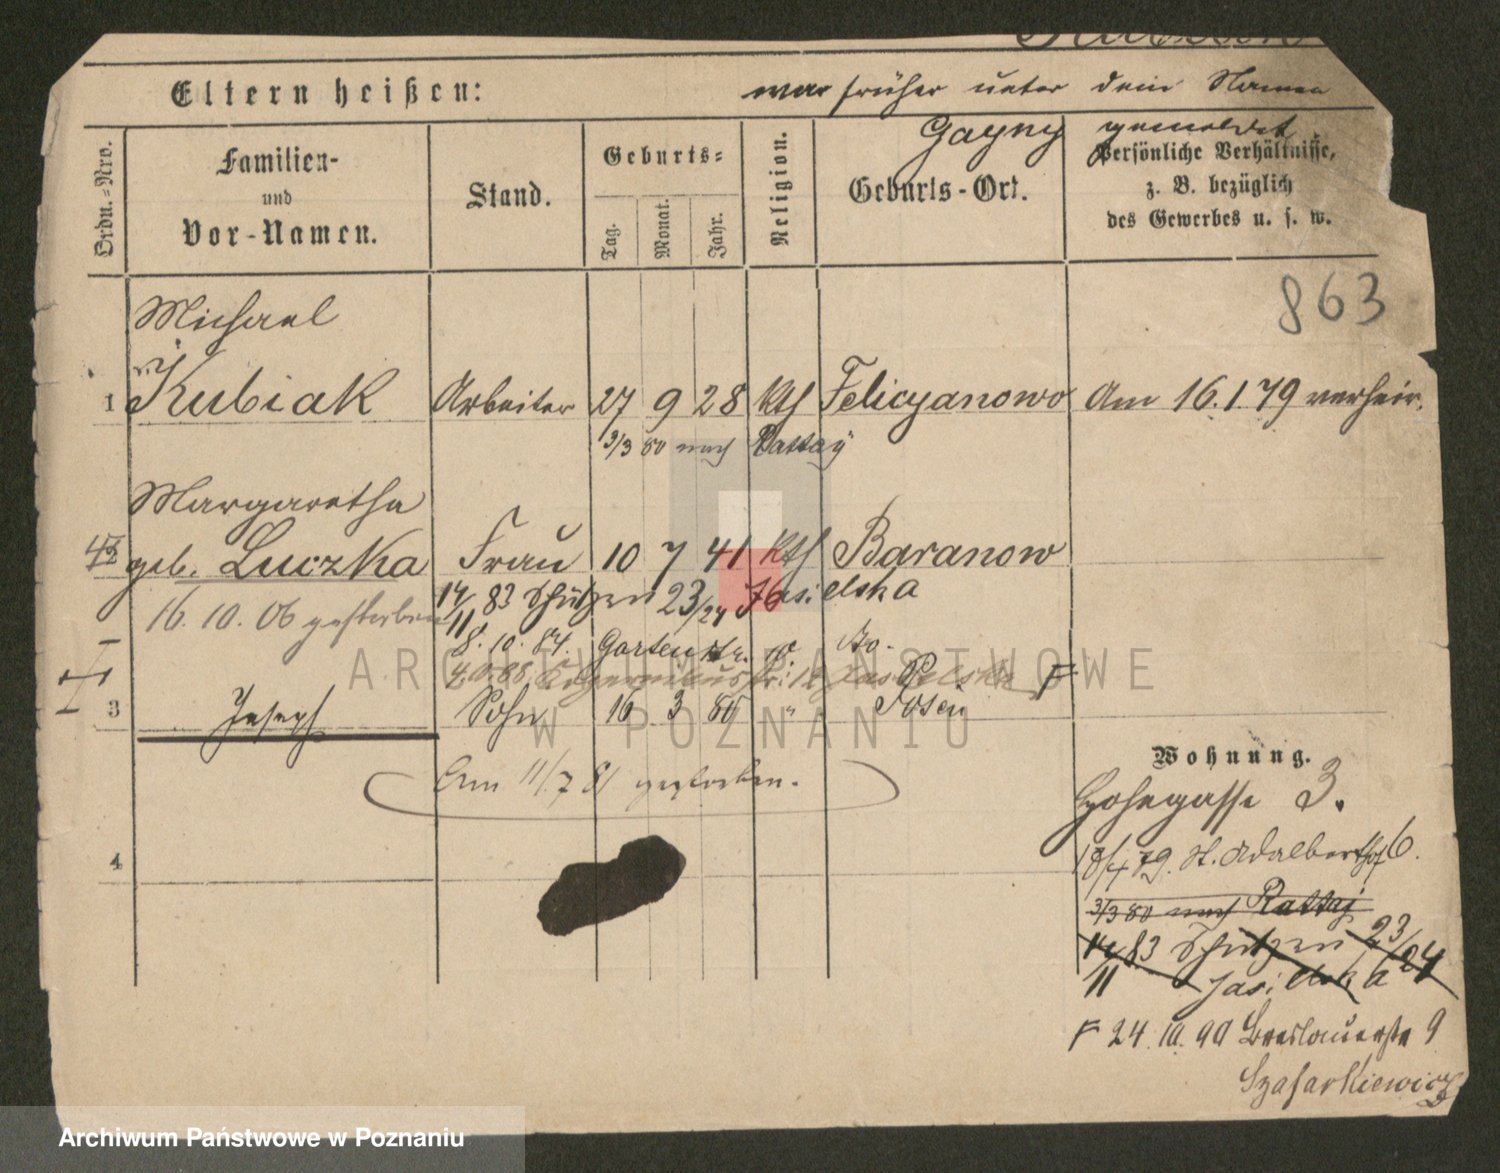 Eltern heißen:
war früher unter dem Namen
Gayny gemeldet
Ordn.-Nro.
Familien-
und
Vor-Namen.
Stand.
Geburts-
Tag.
Monat.
Jahr.
Religion.
Geburts-Ort.
Persönliche Verhältnisse,
z. B. bezüglich
des Gewerbes u. s. w.
863
Michael
1 Kubiak Arbeiter 27 9 28 kth Felicyanowo Am 16.1.79 verheir.
3/3 80 nach Rattay
Margaretha
2 geb. Luczka Frau 10 7 41 kth Baranow
14/11 83 Schützen 23/24 Jasielska
16. 10. 06 gestorben
8. 10. 84. Gartenstr. do.
3 Joseph Sohn 16 3 80 " Posen
Am 11/7 81 gestorben.
4
Wohnung.
3.
18/4 79. St. Adalberth 6.
3/3 80 nach Rattaj
14/11 83 Schützen 23/24
Jasielska
F 24. 10. 90 Breslauerstr 9
Szafarkiewicz
ARCHIWUM PAŃSTWOWE
W POZNANIU
Archiwum Państwowe w Poznaniu